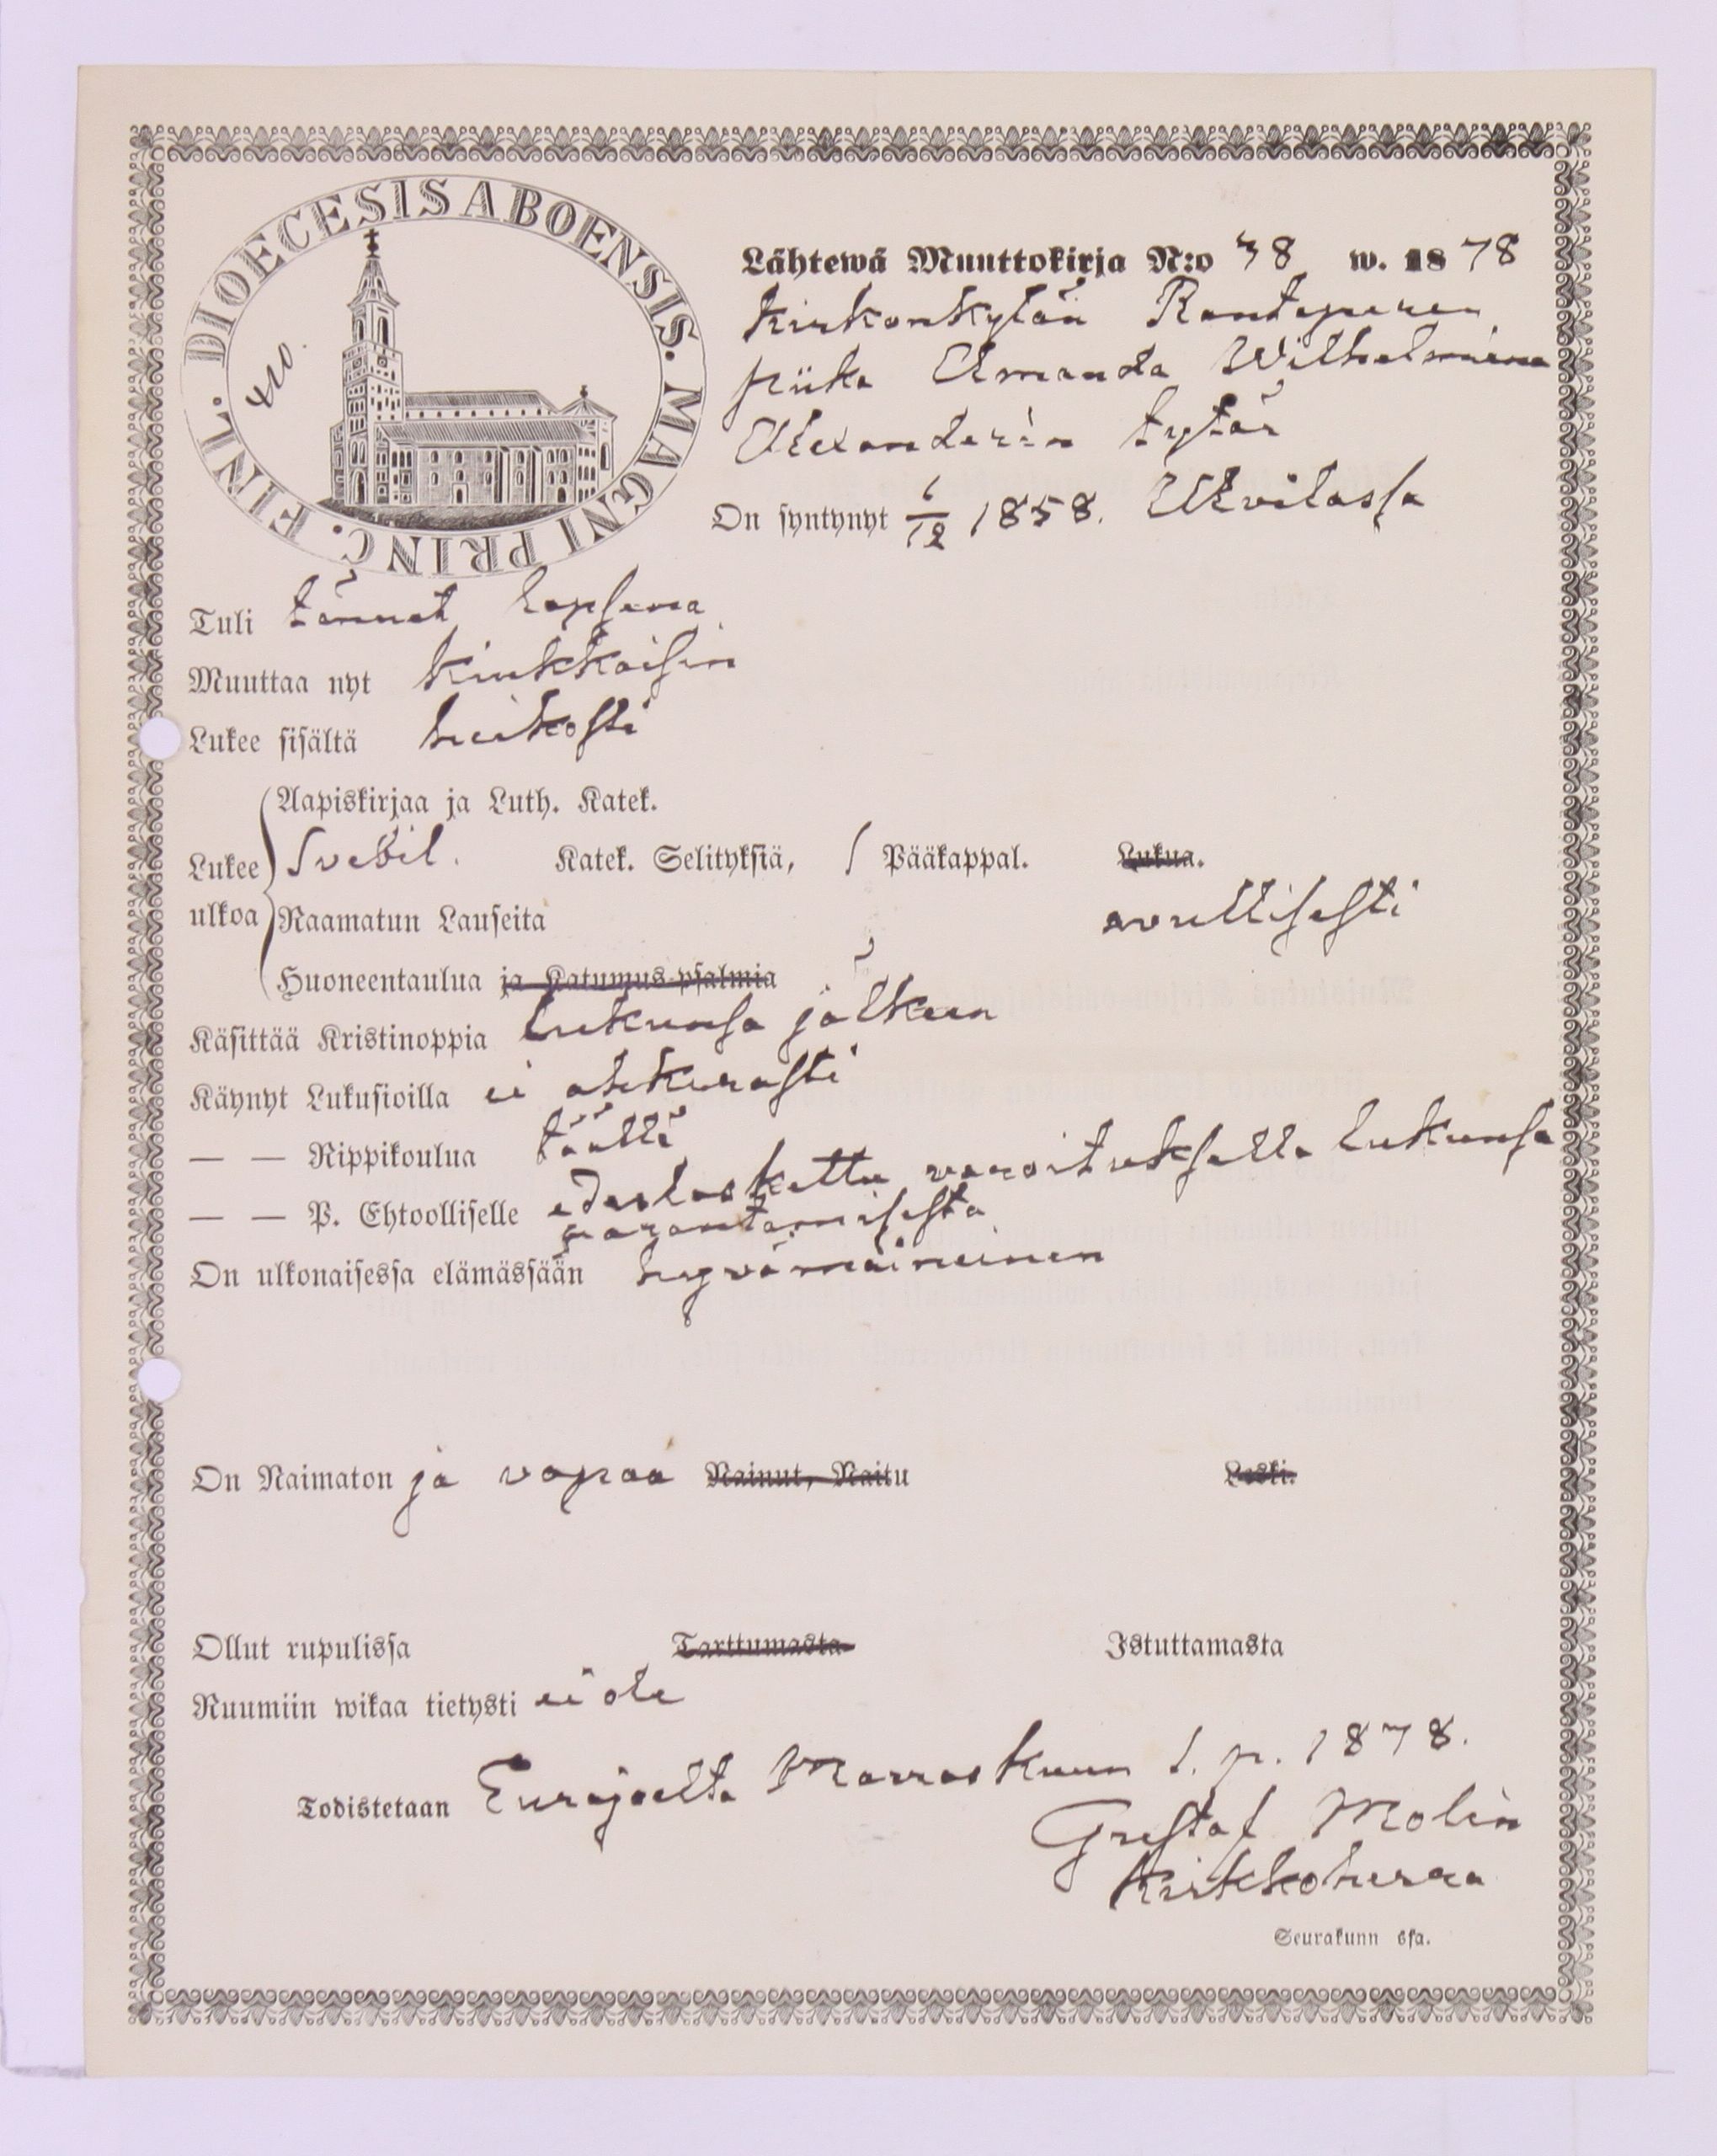 DIOECESIS ABOENSIS. MAGNI PRINC. FINL.
Lähtewä Muuttokirja N:o 38 w. 1878
Kirkonkylän Rantaperen
piika Amanda Wilhelmiina
Alexanderin tytär
On syntynyt 6/12 1858. Ulvilassa
Tuli tännet lapsena
Muuttaa nyt Kiukkaisiin
Lukee sisältä heikosti
Aapiskirjaa ja Luth. Katek.
Lukee Svebil. Katek. Selityksiä, / Pääkappal. Lukua.
ulkoa Raamatun Lauseita avullisesti
Huoneentaulua ja Katumus-psalmia
Käsittää Kristinoppia lukunsa jälkeen
Käynyt Lukusioilla ei ahkerasti
— — Rippikoulua täällä
— — P. Ehtoolliselle edeslaskettu varoituksella lukunsa
parantamisesta
On ulkonaisessa elämässään hyvämaineinen
On Naimaton ja vapaa Nainut, Naitu Leski.
Ollut rupulissa Tarttumasta Istuttamasta
Ruumiin wikaa tietysti ei ole
Todistetaan Eurajoelta Marraskuun 1. p. 1878.
Gustaf Molin
Kirkkoherra
Seurakunn ssa.